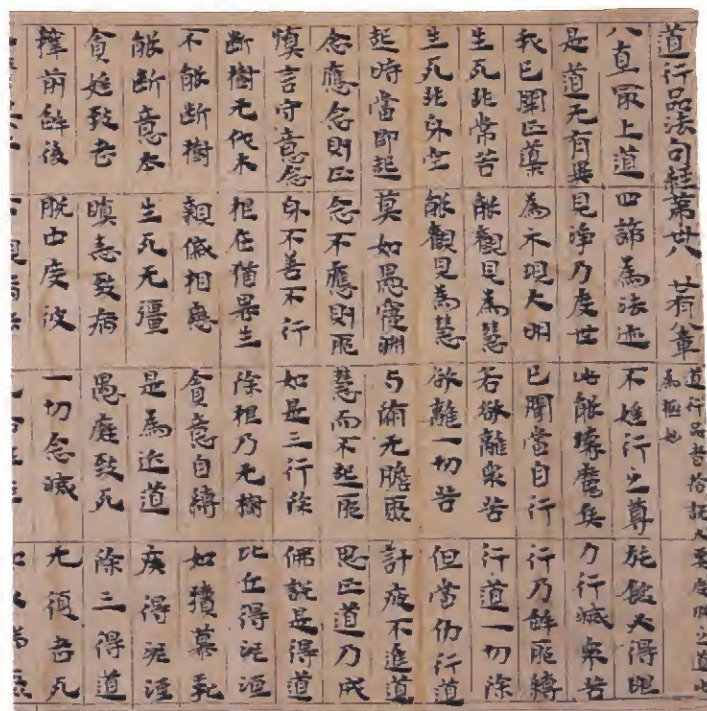 道行品法句經苐廿八 廿有八章 道行品者恉說大要度脫之道此
為極妙
八直冣上道 四諦為法迹 不婬行之尊 施鐙必得眼
是道无有異 見淨乃度世 此能壞魔兵 力行滅衆苦
我已開正道 為示現大明 已聞當自行 行乃解邪縛
生死非常苦 能觀見為慧 若欲離衆苦 行道一切除
生死非身空 能觀見為慧 欲離一切苦 但當仂行道
起時當即起 莫如愚覆淵 与墮无瞻聚 計疲不進道
念應念則正 念不應則邪 慧而不起邪 思正道乃成
慎言守意念 身不善不行 如是三行除 佛說是得道
斷樹无伐本 根在猶復生 除根乃无樹 比丘得泥洹
不能斷樹 親慼相戀 貪意自縛 如犢慕乳
能斷意本 生死无彊 是為近道 疾得泥洹
貪婬致老 瞋恚致病 愚癡致死 除三得道
釋前解後 脫中度彼 一切念滅 无復老死